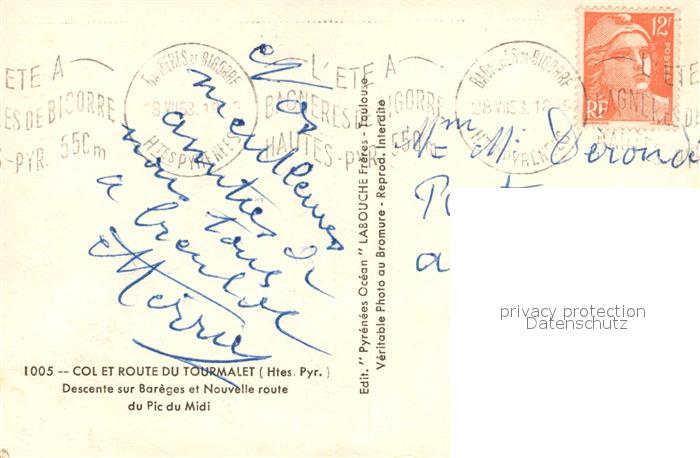 L'ETE A
BAGNERES DE BIGORRE
HAUTES-PYR. 550m
BAGNERES DE BIGORRE
28 VII 53
HTES PYRENEES
L'ETE A
BAGNERES DE BIGORRE
HAUTES-PYR. 550m
BAGNERES DE BIGORRE
28 VII 53. 18
HTES PYRENEES
12F
POSTES
RF
Nos
meilleures
amitiés de
nous tous
à
Edit. "Pyrénées Océan" LABOUCHE Frères - Toulouse
Véritable Photo au Bromure - Reprod. Interdite
a
privacy protection
Datenschutz
1005 -- COL ET ROUTE DU TOURMALET (Htes. Pyr.)
Descente sur Barèges et Nouvelle route
du Pic du Midi